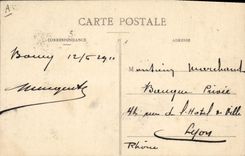 A
CARTE POSTALE
CORRESPONDANCE
ADRESSE
12/5
Monsieur Marchand
Banque Privée
rue de l'Hotel de Ville
Lyon
Rhône